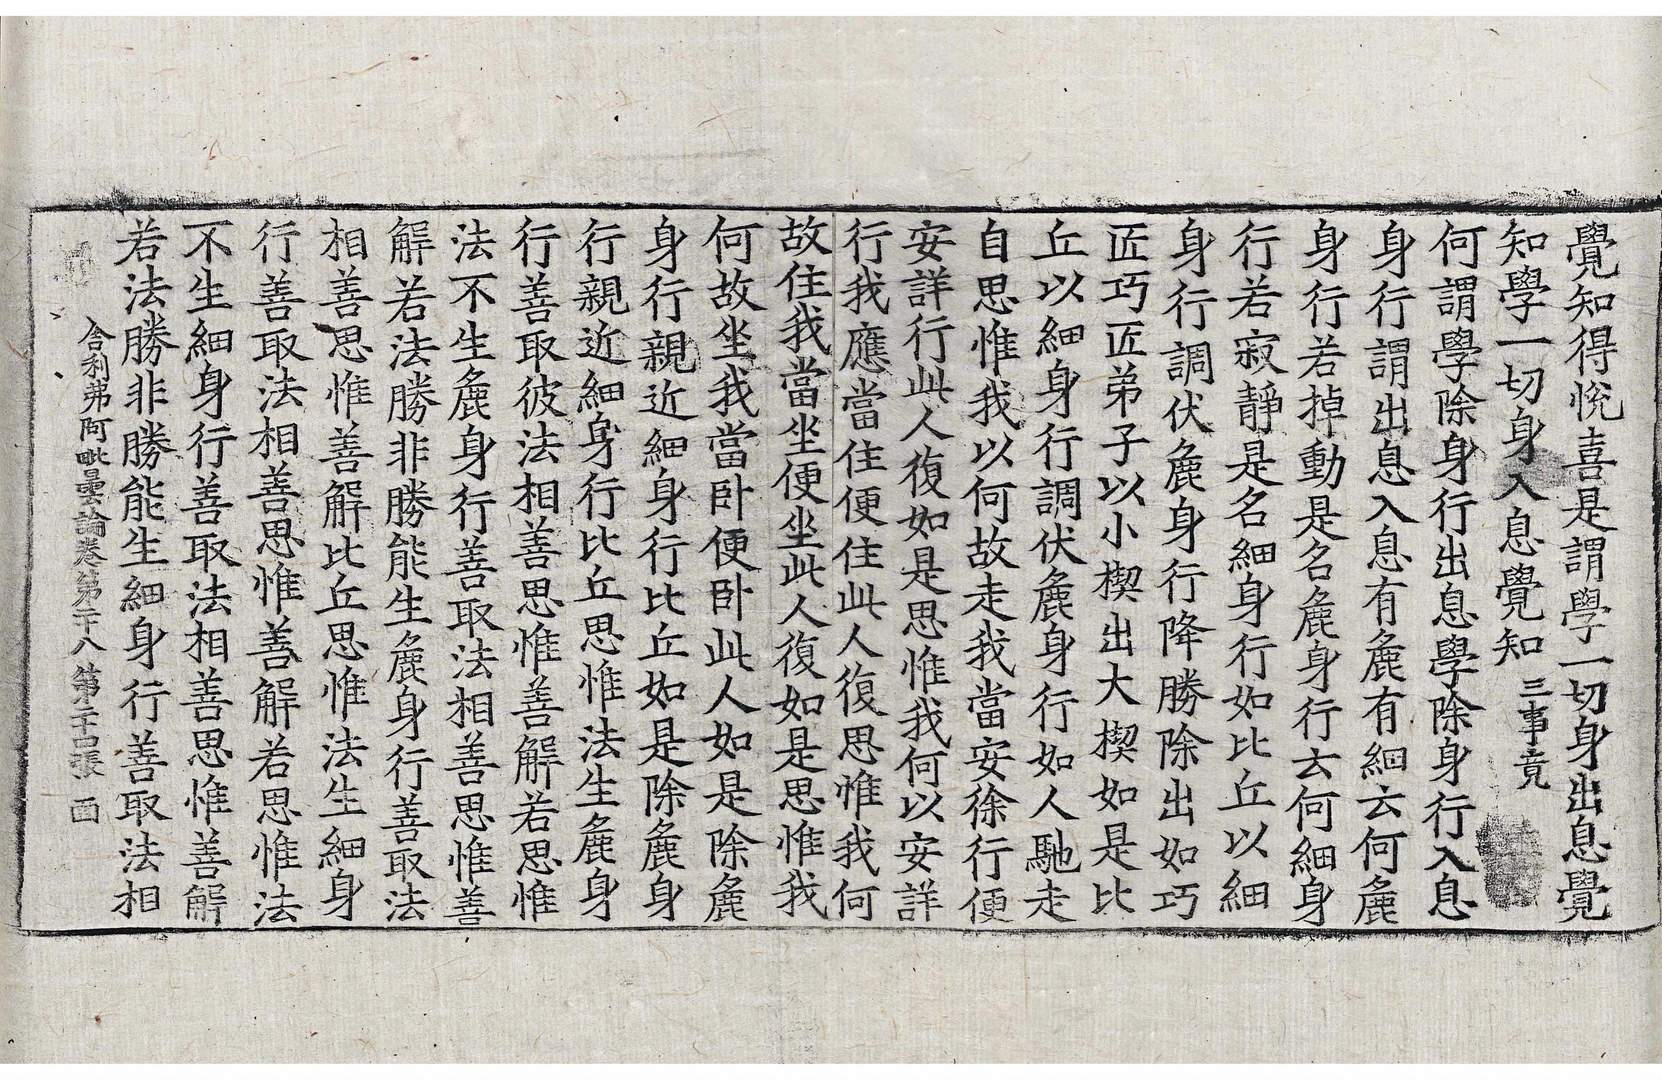 覺知得悅喜是謂學一切身出息覺
知學一切身入息覺知三事竟
何謂學除身行出息學除身行入息
身行謂出息入息有麁有細云何麁
身行若掉動是名麁身行云何細身
行若寂靜是名細身行如比丘以細
身行調伏麁身行降勝除出如巧
匠巧匠弟子以小楔出大楔如是比
丘以細身行調伏麁身行如人馳走
自思惟我以何故走我當安徐行便
安詳行此人復如是思惟我何以安詳
行我應當住便住此人復思惟我何
故住我當坐便坐此人復如是思惟我
何故坐我當卧便卧此人如是除麁
身行親近細身行比丘如是除麁身
行親近細身行比丘思惟法生麁身
行善取彼法相善思惟善解若思惟
法不生麁身行善取法相善思惟善
解若法勝非勝能生麁身行善取法
相善思惟善解比丘思惟法生細身
行善取法相善思惟善解若思惟法
不生細身行善取法相善思惟善解
若法勝非勝能生細身行善取法相
舍利弗阿毗曇論卷第二十八 第二十四張 西